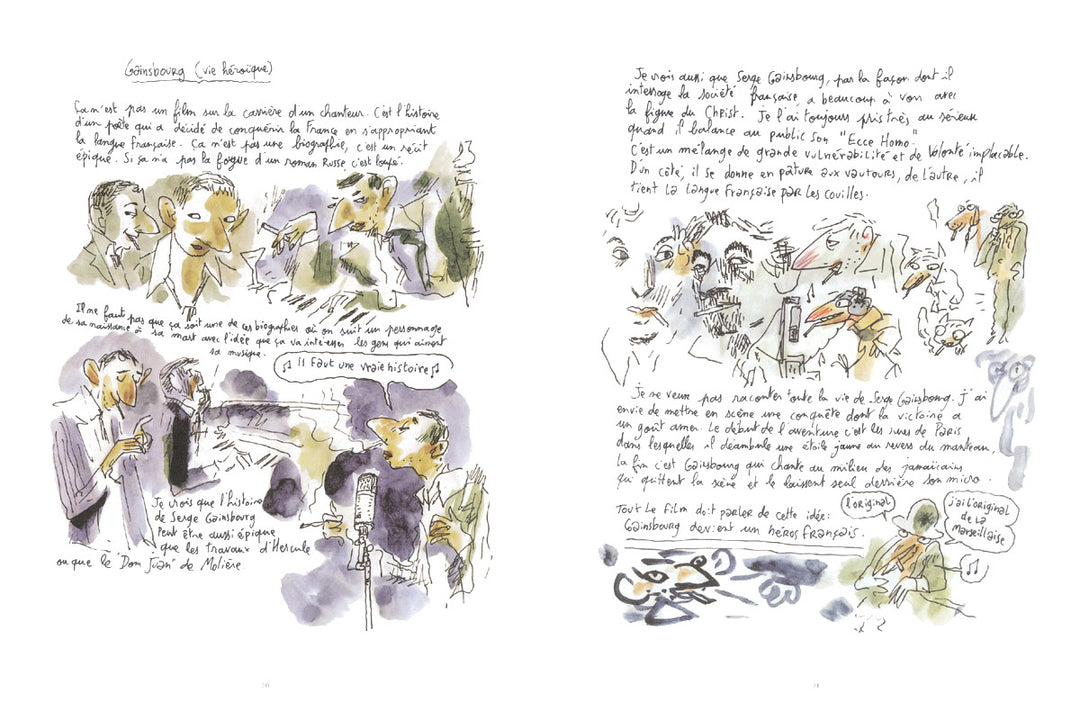 Gainsbourg (vie héroïque)
Ça n'est pas un film sur la carrière d'un chanteur. C'est l'histoire
d'un poète qui a décidé de conquérir la France en s'appropriant
la langue française. Ça n'est pas une biographie, c'est un récit
épique. Si ça n'a pas la fougue d'un roman Russe c'est loupé.
Il ne faut pas que ça soit une de ces biographies où on suit un personnage
de sa naissance à sa mort avec l'idée que ça va intéresser les gens qui aiment
sa musique.
Il faut une vraie histoire
Je crois que l'histoire
de Serge Gainsbourg
Peut être aussi épique
que les travaux d'Hercule
ou que le "Dom Juan" de Molière
20
Je crois aussi que Serge Gainsbourg, par la façon dont il
interroge la société française a beaucoup à voir avec
la figure du Christ. Je l'ai toujours pris très au sérieux
quand il balance au public son "Ecce Homo".
C'est un mélange de grande vulnérabilité et de Volonté implacable.
D'un côté, il se donne en pâture aux vautours, de l'autre, il
tient la langue française par les couilles.
Je ne veux pas raconter toute la vie de Serge Gainsbourg. J'ai
envie de mettre en scène une conquête dont la victoire a
un goût amer. Le début de l'aventure c'est les rues de Paris
dans lesquelles il déambule une étoile jaune au revers du manteau,
la fin c'est Gainsbourg qui chante au milieu des jamaïcains
qui quittent la scène et le laissent seul derrière son micro.
Tout le film doit parler de cette idée:
Gainsbourg devient un héros français.
l'original
j'ai l'original
de la
Marseillaise
21